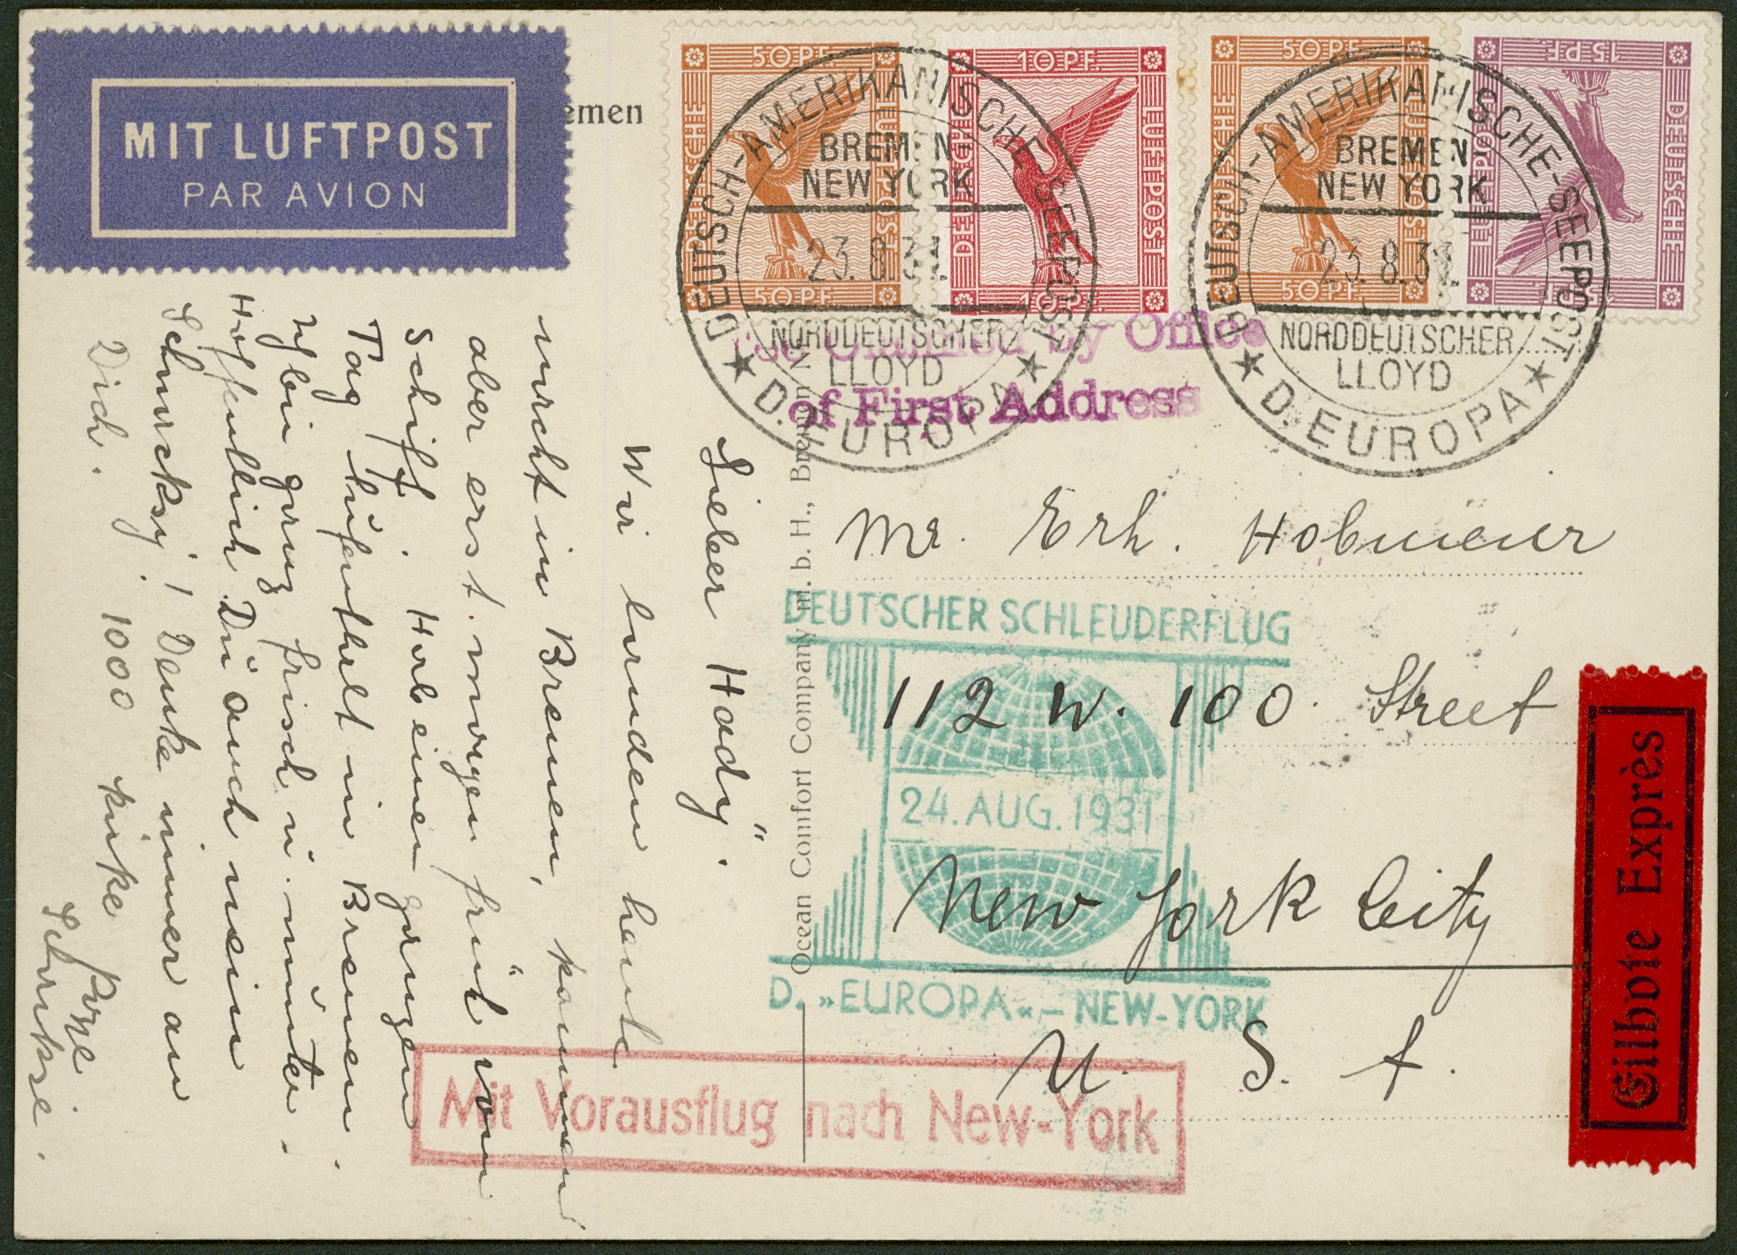 MIT LUFTPOST
PAR AVION
emen
50 PF.
DEUTSCHE
LUFTPOST
50 PF.
10 PF.
DEUTSCHE
LUFTPOST
10 PF.
50 PF.
DEUTSCHE
LUFTPOST
50 PF.
15 PF.
DEUTSCHE
LUFTPOST
15 PF.
DEUTSCH-AMERIKANISCHE-SEEPOST
BREMEN-
NEW YORK
23.8.31.
NORDDEUTSCHER
LLOYD
★ D. EUROPA ★
DEUTSCH-AMERIKANISCHE-SEEPOST
BREMEN-
NEW YORK
23.8.31.
NORDDEUTSCHER
LLOYD
★ D. EUROPA ★
by Office
of First Address
Lieber Hady".
Wir landen heute
nacht in Bremen, kommen
aber erst morgen früh vom
Schiff. Hab einen ganzen
Tag Aufenthalt in Bremen.
Ich bin ganz frisch u. munter.
Hoffentlich Du auch mein
Schnucksi! Denke immer an
Dich. 1000
Ocean Comfort Company m. b. H., Bremen
Mr. Erh. Hobmeier
112 W. 100. Street
New York City
U. S. A.
DEUTSCHER SCHLEUDERFLUG
24. AUG. 1931
D. »EUROPA« – NEW-YORK
Mit Vorausflug nach New-York
Eilbote Exprès